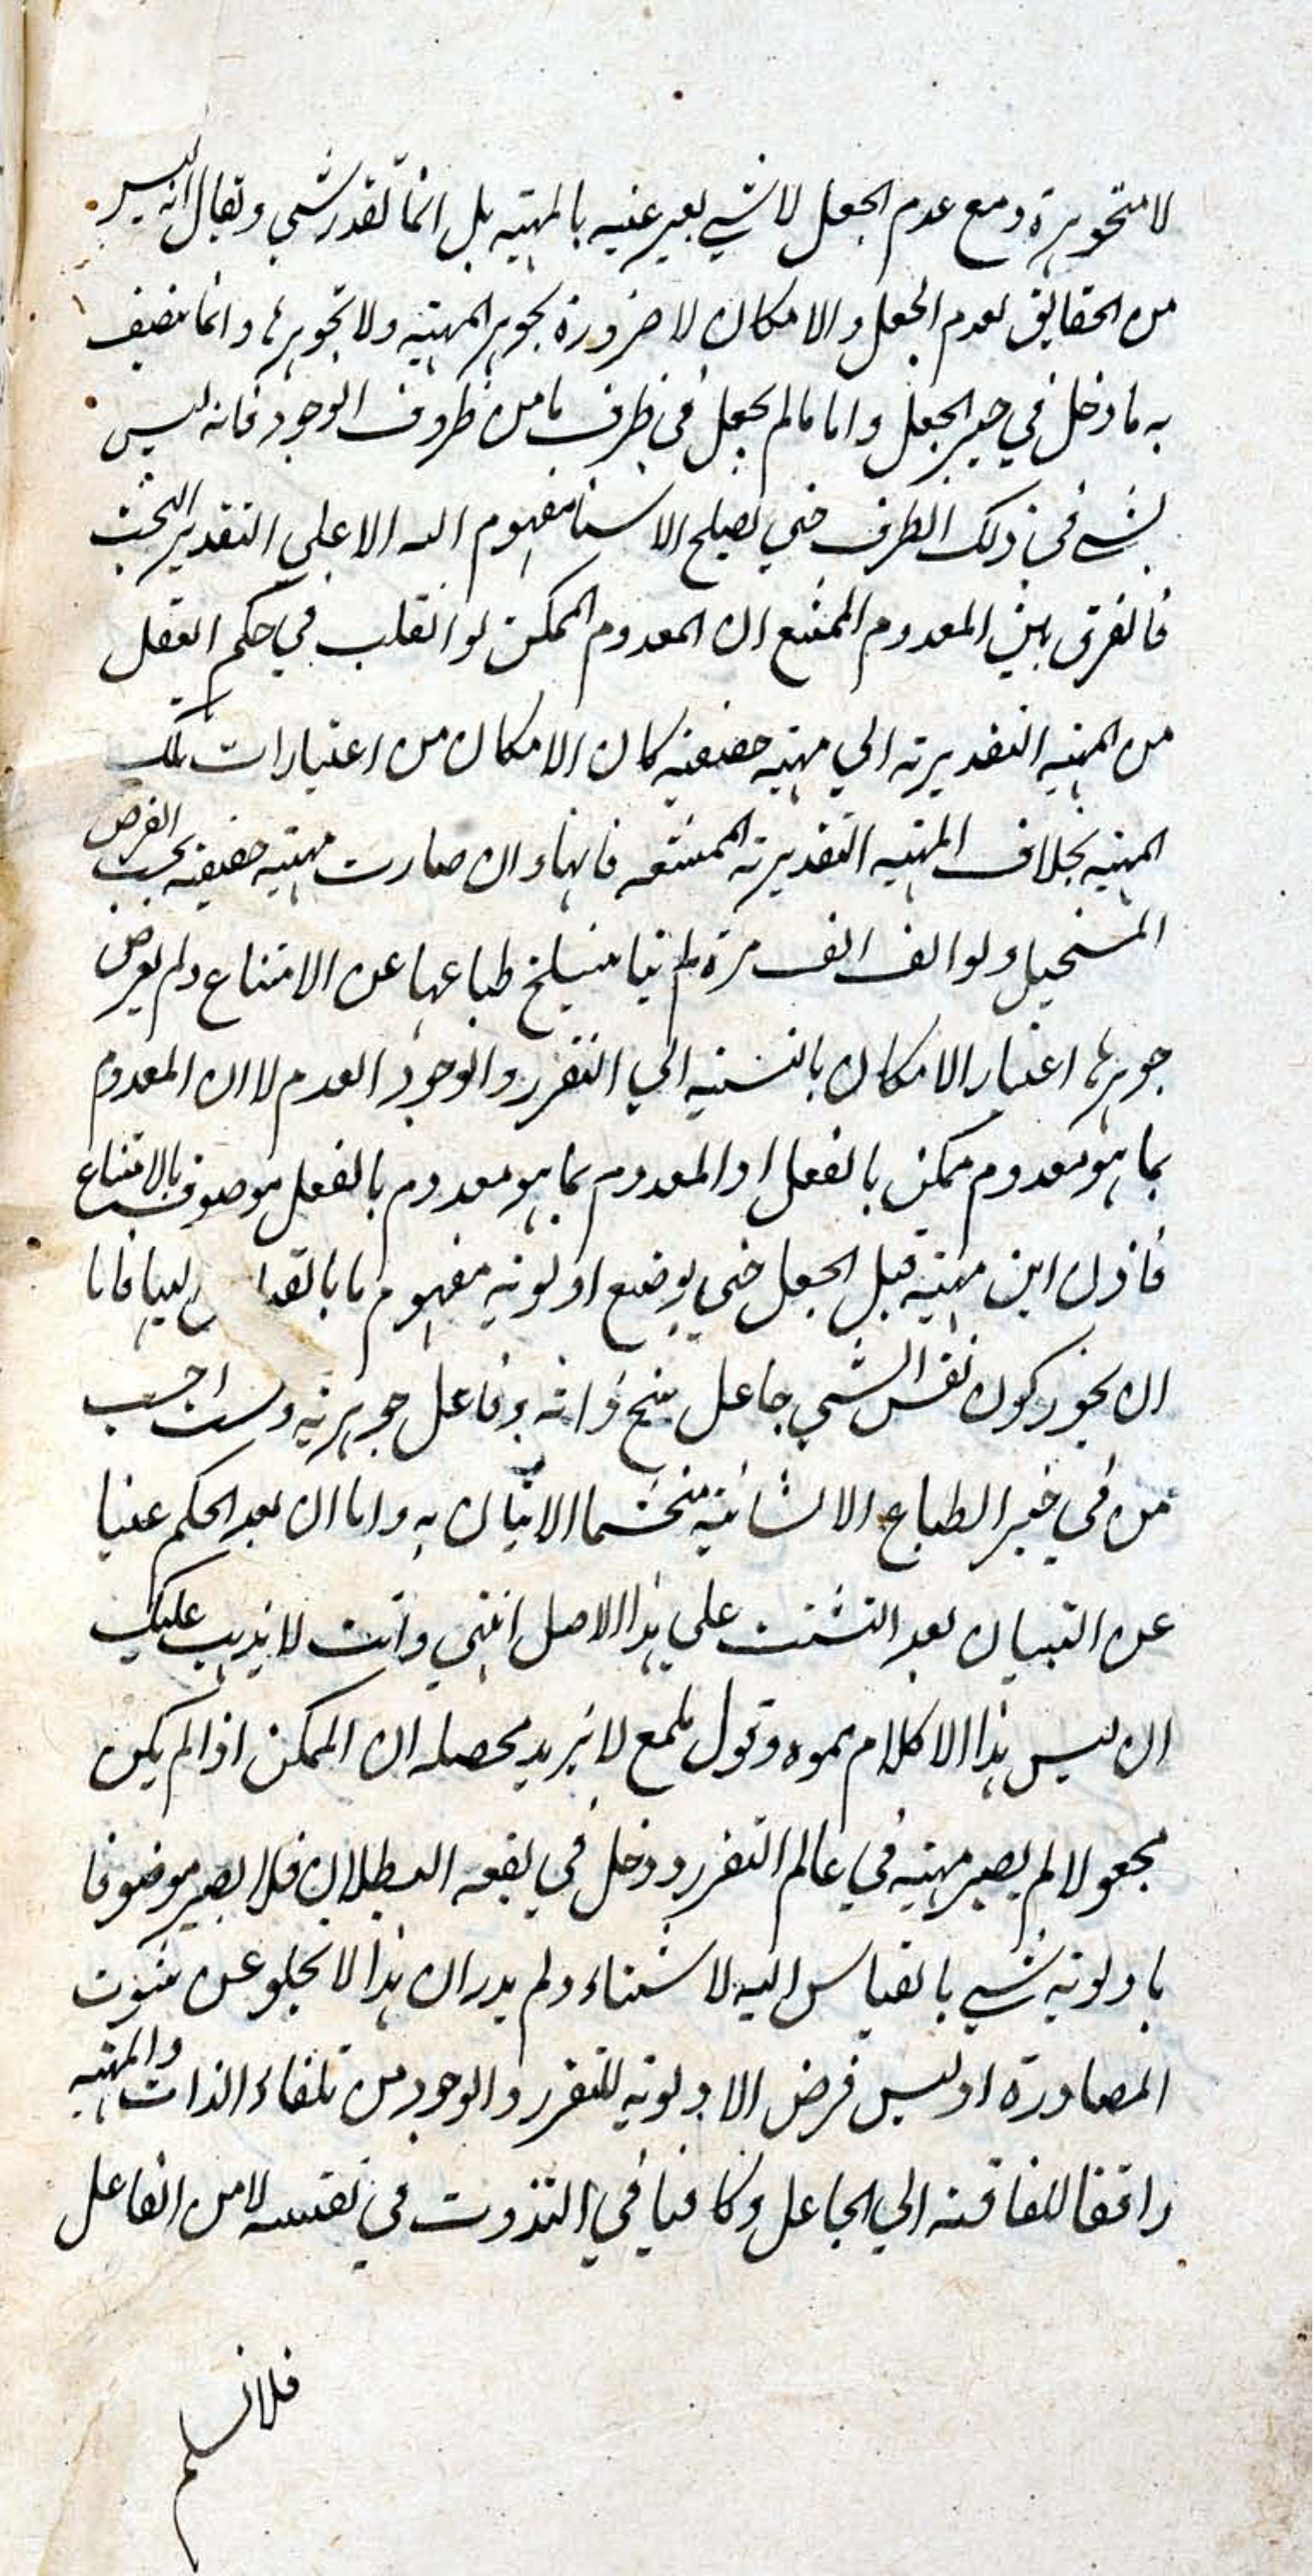 لا متجوهرة ومع عدم الجعل لا شيء يعبر عنه بالمهية بل انما تقدر شيء ويقال انه ليس
من الحقايق لعدم الجعل والامكان لا ضرورة تجوهر المهية ولا تجوهرها وانما يتصف
به ما دخل في حيز الجعل واما ما لم يجعل في ظرف ما من ظروف الوجود فانه ليس
بشيء في ذلك الظرف حتي يصلح الاسناد مفهوم اليه الا علي التقدير البحت
فالفرق بين المعدوم الممتنع ان المعدوم الممكن لو انقلب في حكم العقل
من المهية التقديرية الي مهية حقيقية كان الامكان من اعتبارات تلك
المهية بخلاف المهية التقديرية الممتنعه فانها وان صارت مهية حقيقية بحسب الفرض
المستحيل ولو الف الف مرة لم ينسلخ طباعها عن الامتناع ولم يعرض
جوهرها اعتبار الامكان بالنسبة الي التقرر والوجود العدم لا ان المعدوم
بما هو معدوم ممكن بالفعل او المعدوم بما هو معدوم بالفعل موصوف بالامتناع
فاذن اين مهية قبل الجعل حتي يوضع اولوية مفهوم ما بالقياس اليها فاما
ان يجوز كون نفس الشيء جاعل سنخ ذاته وفاعل جوهريته ولست احسب
من في حيز الطباع الانسانية متجشما الاتيان به واما ان يعد الحكم غنيا
عن التبيان بعد التثبت علي هذا الاصل انتهي وانت لا يذهب عليك
ان ليس هذا الا كلام مموه وقول ملمع لا يزيد محصله ان الممكن اذا لم يكن
مجعولا لم يصير مهية في عالم التقرر ودخل في بقعه البطلان فلا يصير موضوفا
باولوية شيء بالقياس اليه لاستثناء ولم يدر ان هذا لا يخلو عن شوب
المصادرة اوليس فرض الاولوية للتقرر والوجود من تلقاء الذات والمهية
رافعا للفاقة الي الجاعل وكافيا في التذوت في نفسه لا من الفاعل
فلانسلم